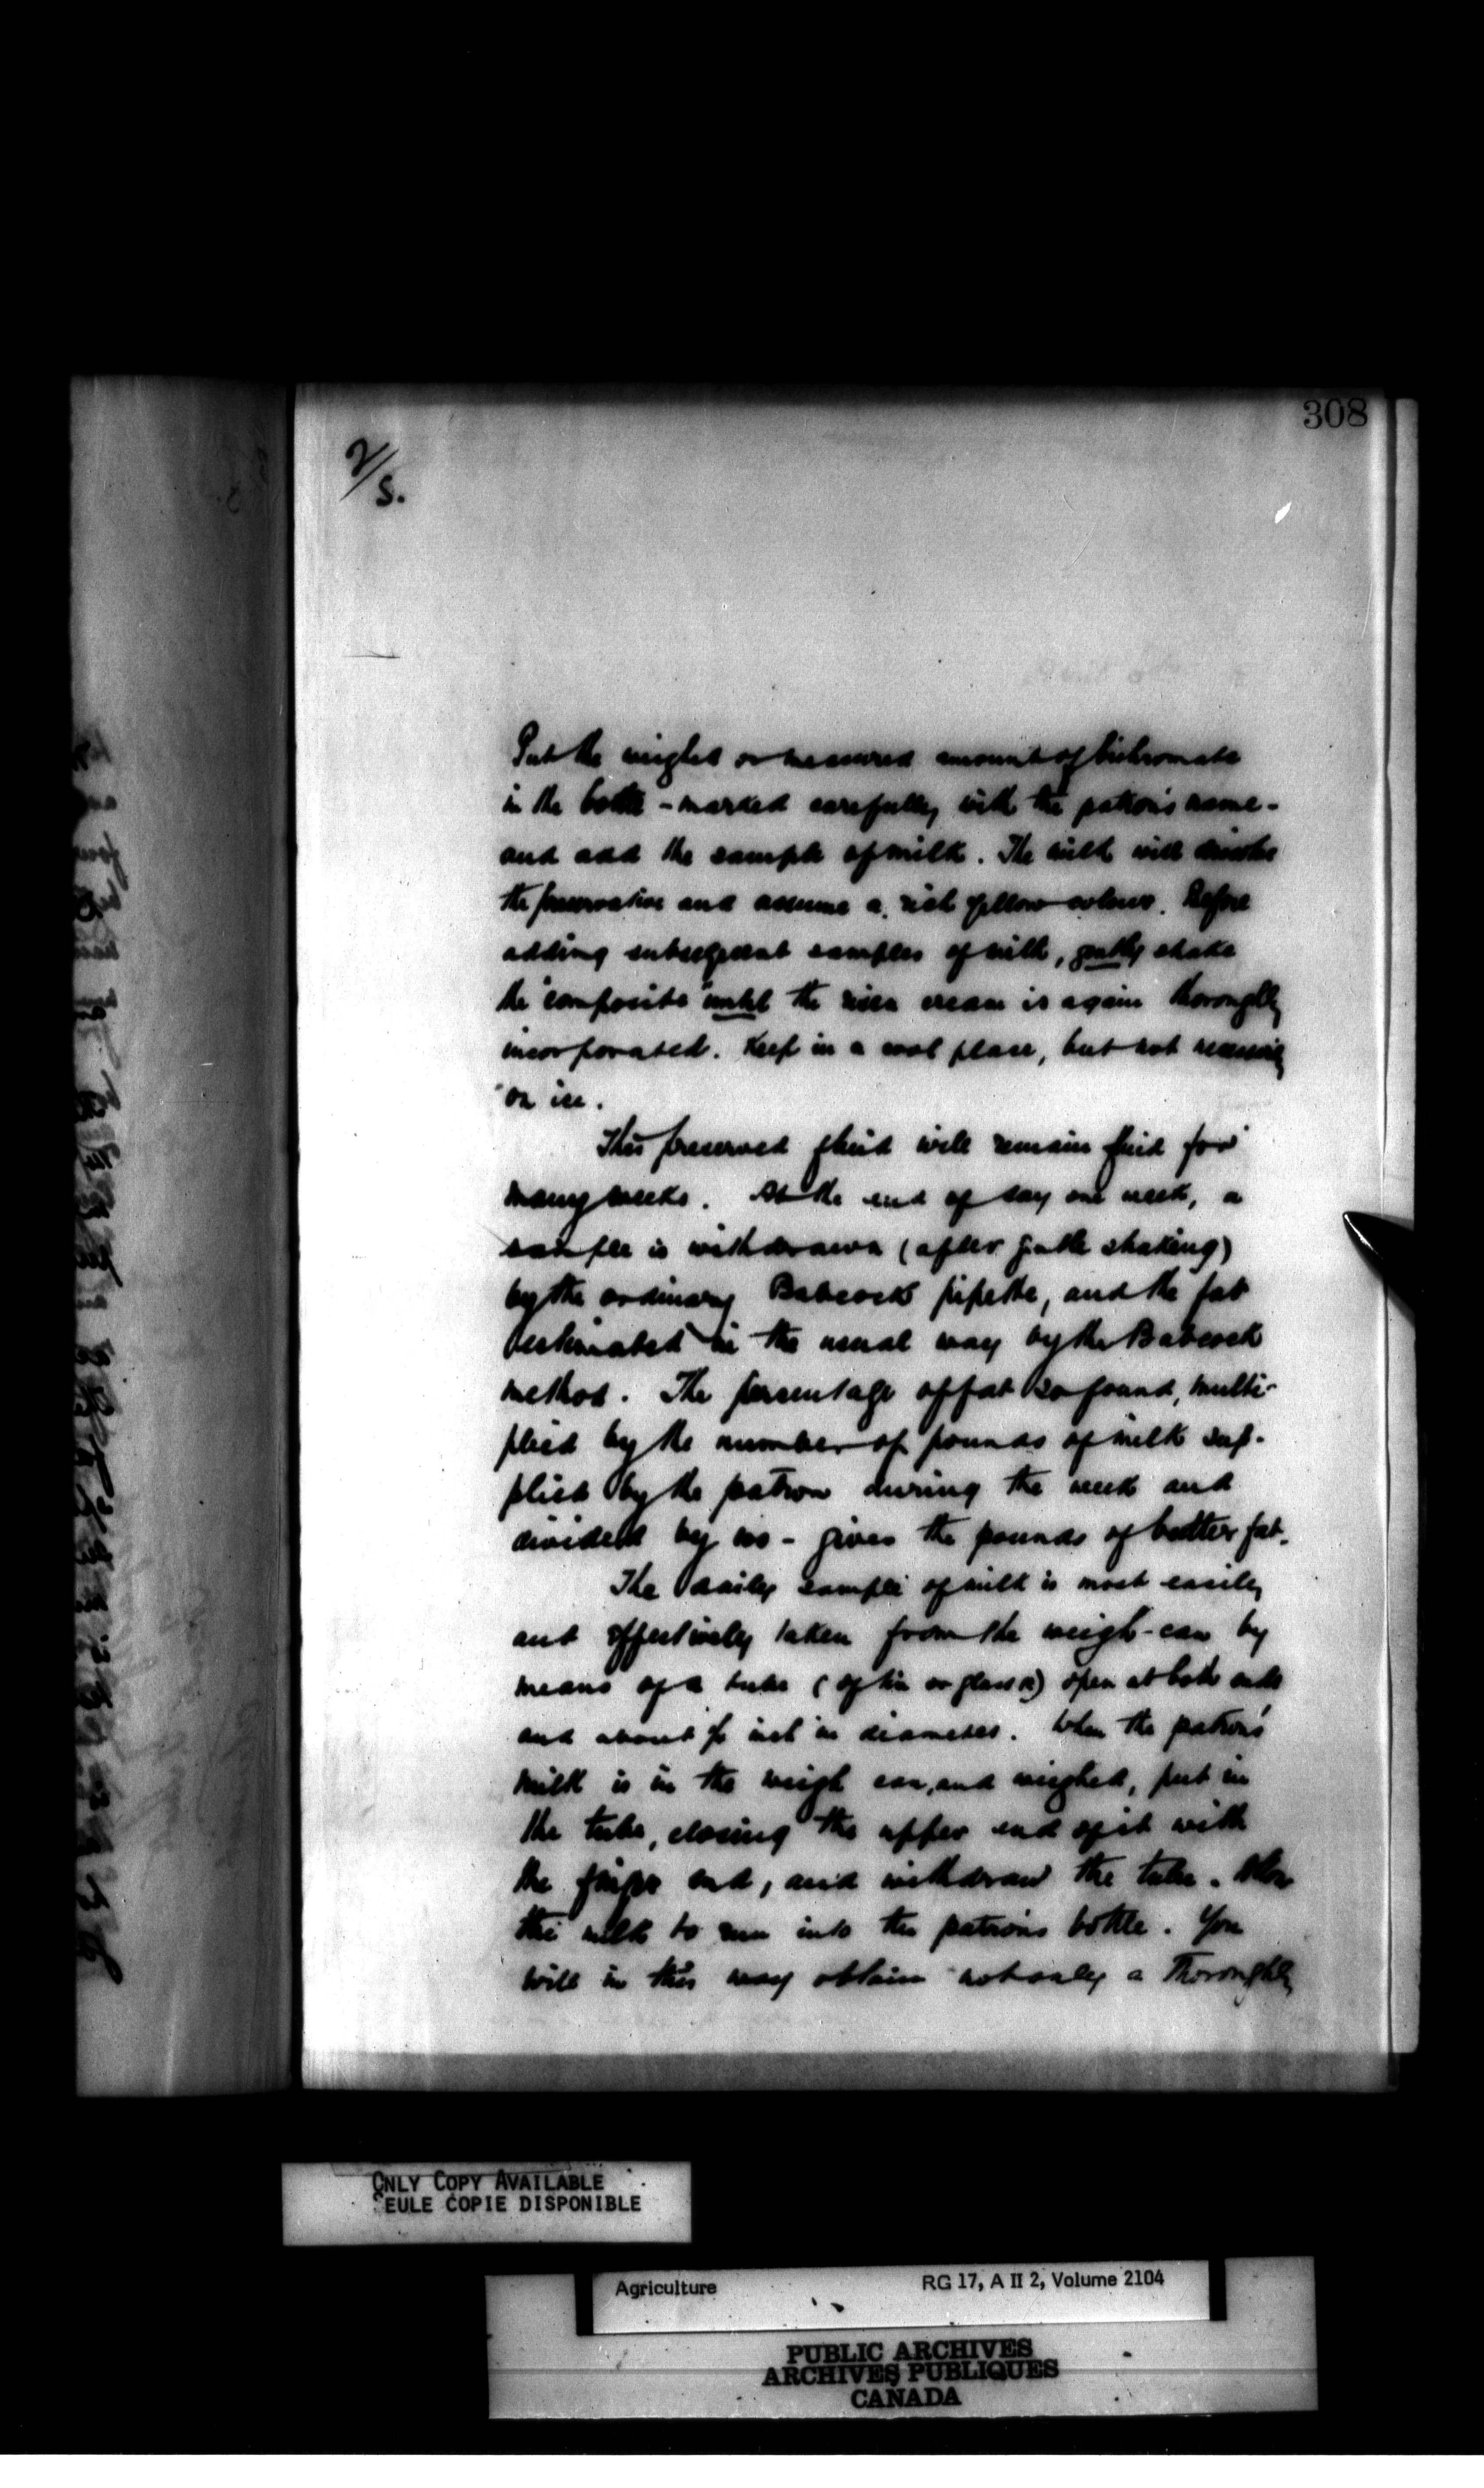 308
2/S.
Put the weighed or measured amount of bichromate
in the bottle - marked carefully with the patron's name -
and add the sample of milk. The milk will dissolve
the preservative and assume a rich yellow colour. Before
adding subsequent samples of milk, gently shake
the "composite" until the risen cream is again thoroughly
incorporated. Keep in a cool place, but not necessarily
on ice.
This preserved fluid will remain fluid for
many weeks. At the end of say one week, a
sample is withdrawn (after gentle shaking)
by the ordinary Babcock pipette, and the fat
estimated in the usual way by the Babcock
method. The percentage of fat so found, multi-
plied by the number of pounds of milk sup-
plied by the patron during the week and
divided by 100 - gives the pounds of butter fat.
The daily sample of milk is most easily
and effectively taken from the weigh-can by
means of a tube (of tin or glass) open at both ends
and about inch in diameter. When the patron's
milk is in the weigh can, and weighed, put in
the tube, closing the upper end of it with
the finger end, and withdraw the tube. Allow
the milk to run into the patron's bottle. You
will in this way obtain not only a thoroughly
ONLY COPY AVAILABLE
SEULE COPIE DISPONIBLE
Agriculture RG 17, A II 2, Volume 2104
PUBLIC ARCHIVES
ARCHIVES PUBLIQUES
CANADA